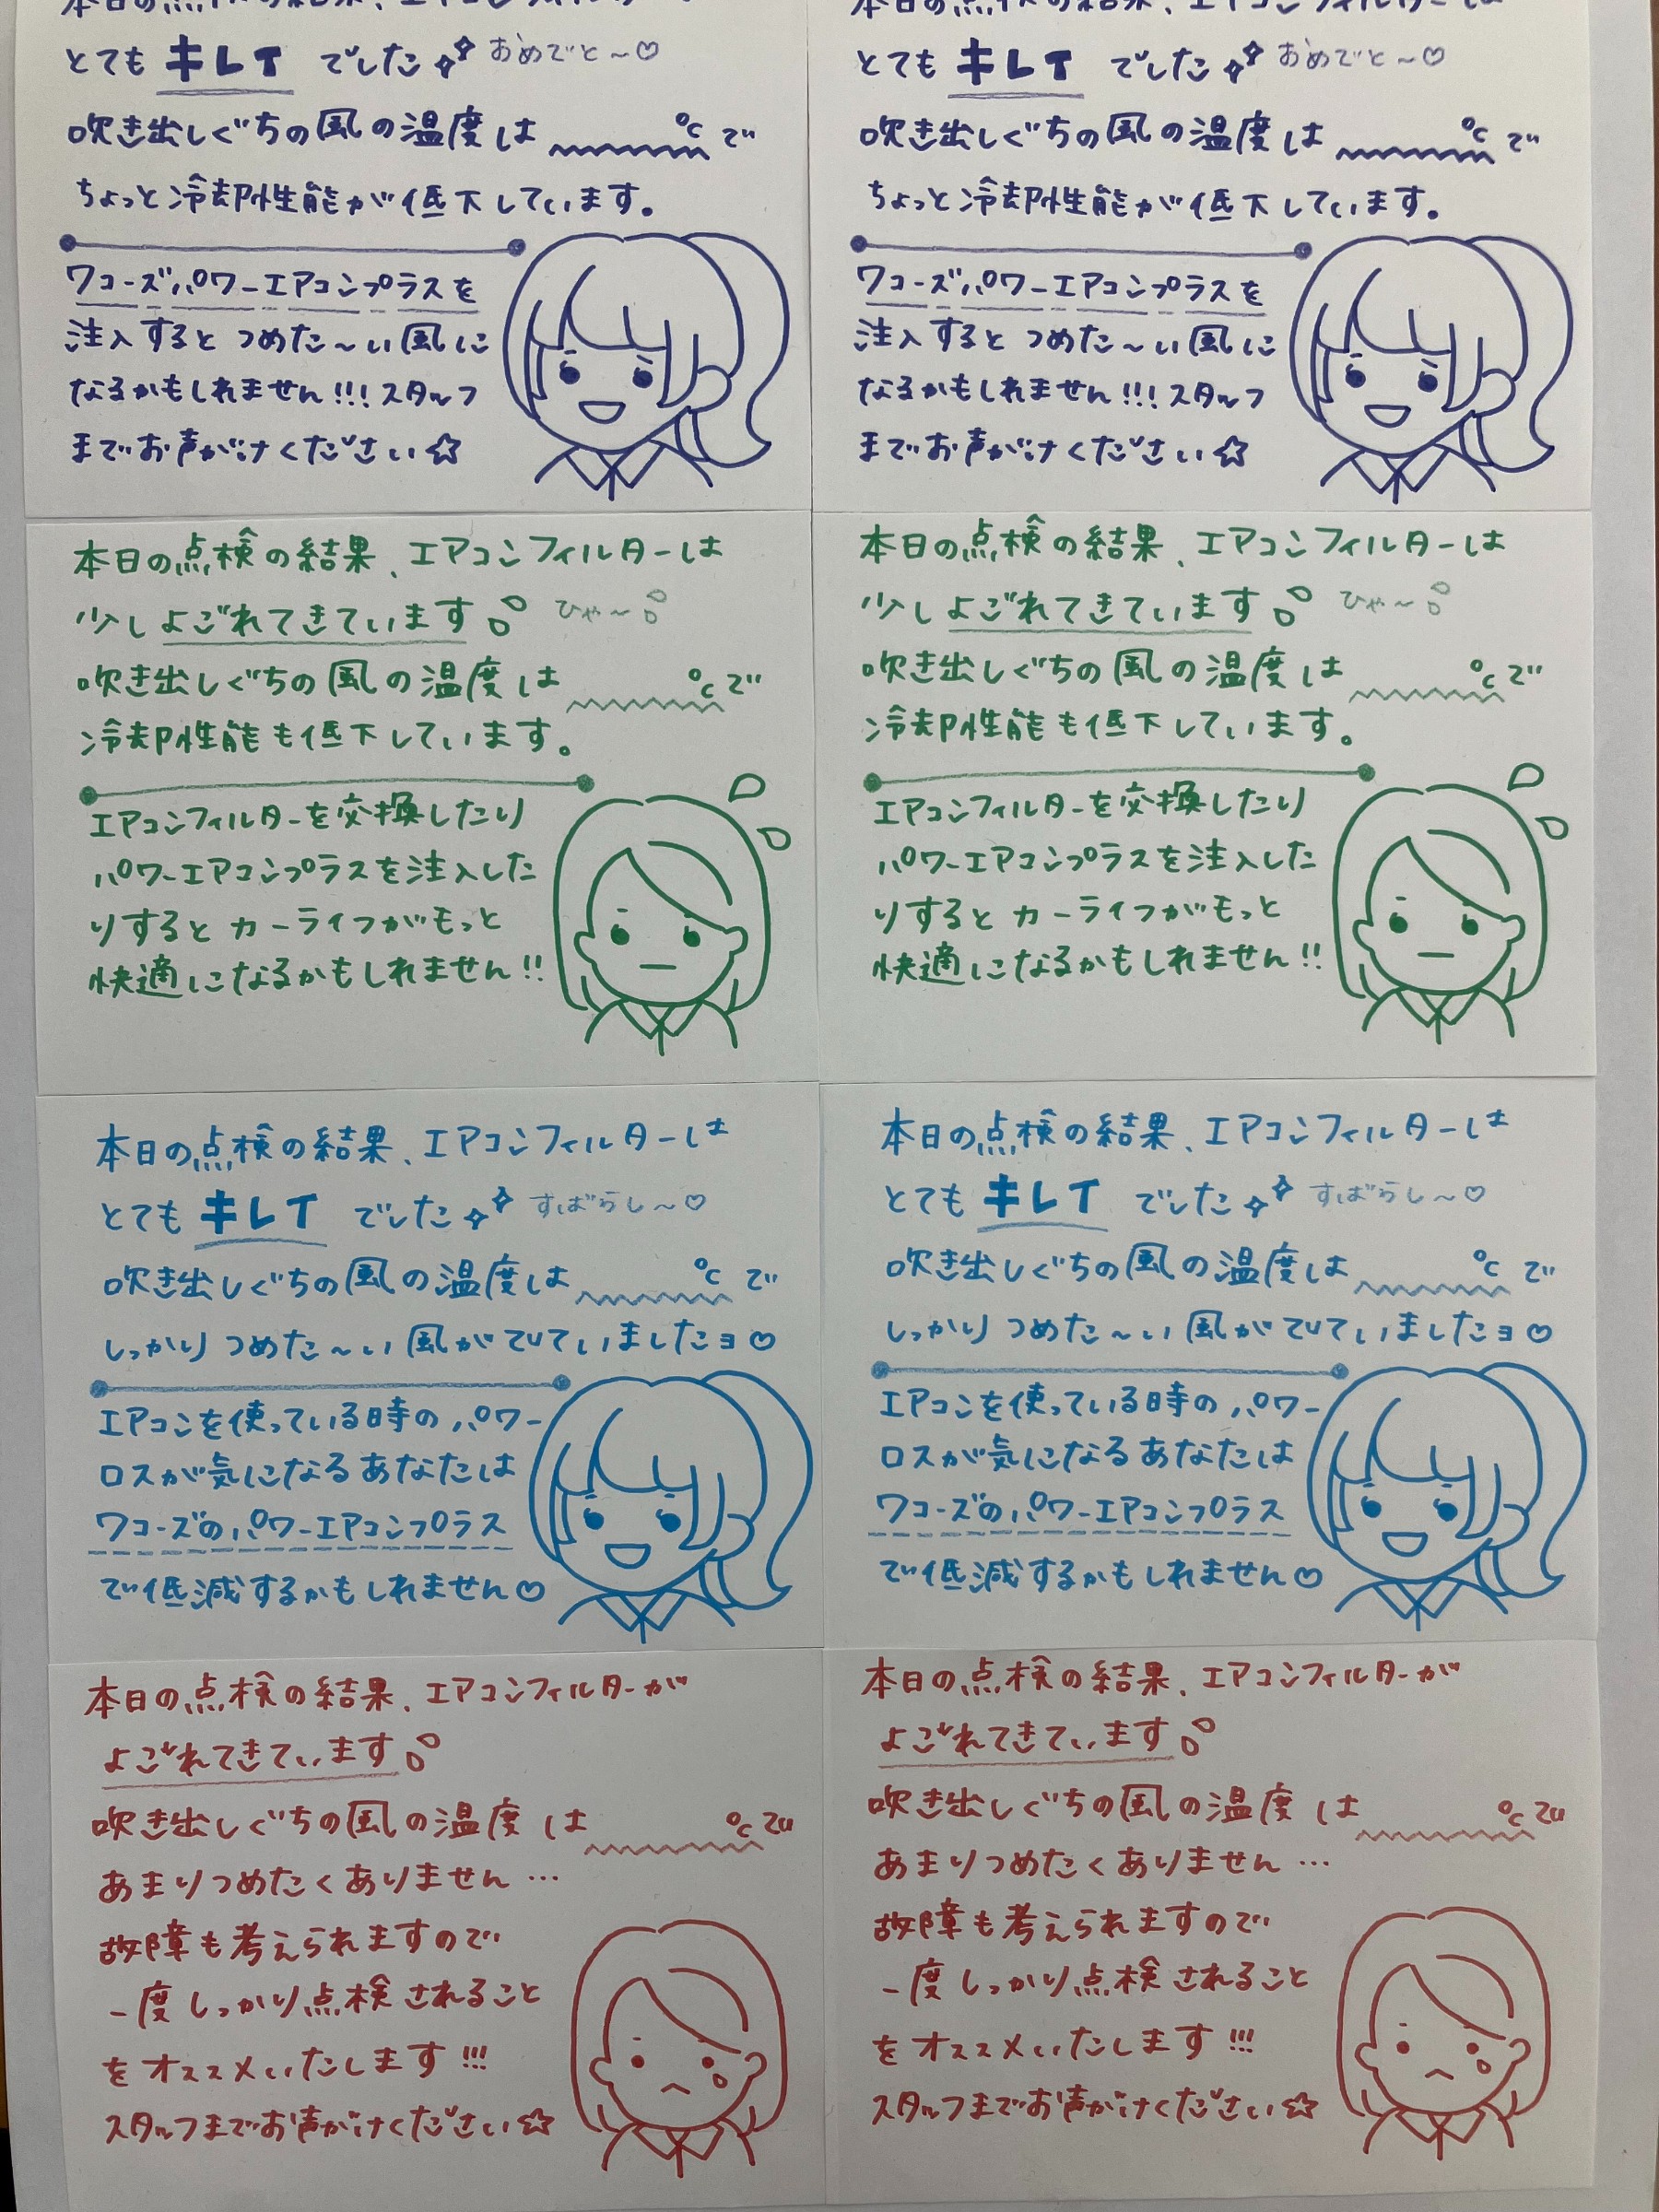 本日の点検の結果、エアコンフィルターは
とても キレイ でした おめでと〜♡
吹き出しぐちの風の温度は ℃で
ちょっと冷却性能が低下しています。
ワコーズパワーエアコンプラスを
注入すると つめた〜い風に
なるかもしれません!!! スタッフ
までお声がけください☆
本日の点検の結果、エアコンフィルターは
とても キレイ でした おめでと〜♡
吹き出しぐちの風の温度は ℃で
ちょっと冷却性能が低下しています。
ワコーズパワーエアコンプラスを
注入すると つめた〜い風に
なるかもしれません!!! スタッフ
までお声がけください☆
本日の点検の結果、エアコンフィルターは
少しよごれてきています ひゃ〜
吹き出しぐちの風の温度は ℃で
冷却性能も低下しています。
エアコンフィルターを交換したり
パワーエアコンプラスを注入した
りすると カーライフがもっと
快適になるかもしれません!!
本日の点検の結果、エアコンフィルターは
少しよごれてきています ひゃ〜
吹き出しぐちの風の温度は ℃で
冷却性能も低下しています。
エアコンフィルターを交換したり
パワーエアコンプラスを注入した
りすると カーライフがもっと
快適になるかもしれません!!
本日の点検の結果、エアコンフィルターは
とても キレイ でした すばらし〜♡
吹き出しぐちの風の温度は ℃で
しっかり つめた〜い 風がでていましたヨ♡
エアコンを使っている時の パワー
ロスが気になるあなたは
ワコーズのパワーエアコンプラス
で低減するかもしれません♡
本日の点検の結果、エアコンフィルターは
とても キレイ でした すばらし〜♡
吹き出しぐちの風の温度は ℃で
しっかり つめた〜い 風がでていましたヨ♡
エアコンを使っている時の パワー
ロスが気になるあなたは
ワコーズのパワーエアコンプラス
で低減するかもしれません♡
本日の点検の結果、エアコンフィルターが
よごれてきています
吹き出しぐちの風の温度は ℃で
あまりつめたくありません…
故障も考えられますので
一度しっかり点検されること
をオススメいたします!!!
スタッフまでお声がけください☆
本日の点検の結果、エアコンフィルターが
よごれてきています
吹き出しぐちの風の温度は ℃で
あまりつめたくありません…
故障も考えられますので
一度しっかり点検されること
をオススメいたします!!!
スタッフまでお声がけください☆